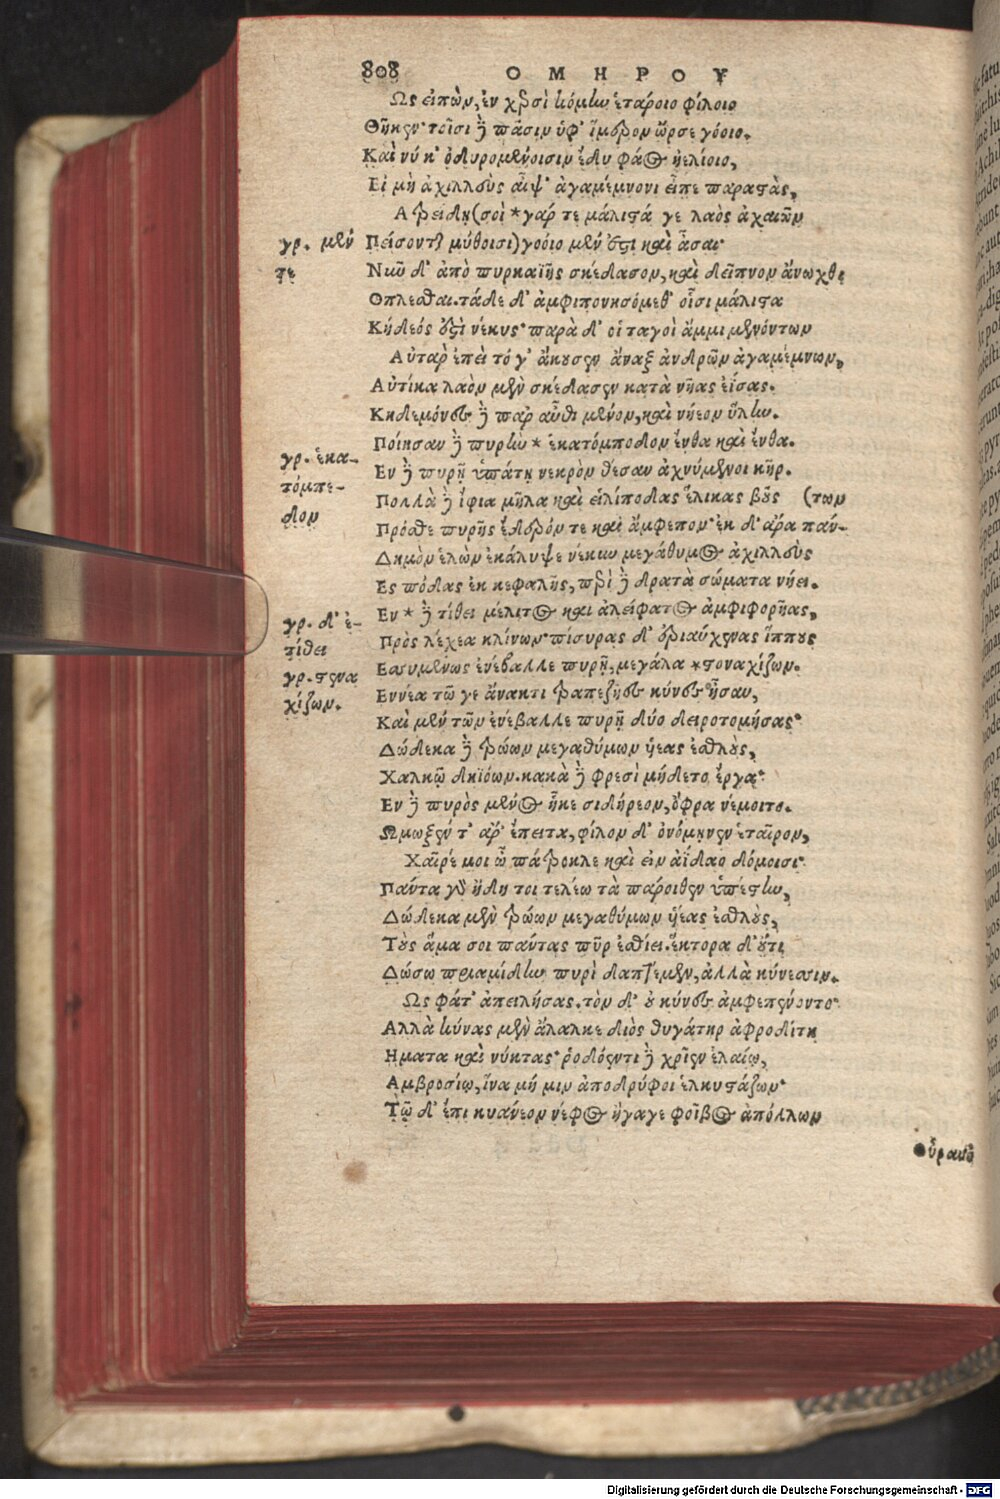 808 ΟΜΗΡΟΥ
Ως εἰπὼν, ἐν χερσὶ κόμην ἑτάροιο φίλοιο
Θῆκεν· τοῖσι δὲ πᾶσιν ὑφ' ἵμερον ὦρσε γόοιο.
Καὶ νύ κ' ὀδυρομένοισιν ἔδυ φάος ἠελίοιο,
Εἰ μὴ ἀχιλλεὺς αἶψ' ἀγαμέμνονι εἶπε παραστὰς,
Ατρείδη (σοὶ * γάρ τε μάλιστά γε λαὸς ἀχαιῶν
γρ. μέν Πείσονται μύθοισι) γόοιο μέν ἐστι καὶ ἆσαι·
τε Νῦν δ' ἀπὸ πυρκαϊῆς σκέδασον, καὶ δεῖπνον ἄνωχθι
Οπλεσθαι. τάδε δ' ἀμφιπονησόμεθ' οἷσι μάλιστα
Κήδεός ἐστι νέκυς· παρὰ δ' οἱ ταγοὶ ἄμμι μενόντων
Αὐτὰρ ἐπεὶ τό γ' ἄκουσεν ἄναξ ἀνδρῶν ἀγαμέμνων,
Αὐτίκα λαὸν μὲν σκέδασεν κατὰ νῆας ἐΐσας.
Κηδεμόνες δὲ παρ' αὖθι μένον, καὶ νήεον ὕλην.
Ποίησαν δὲ πυρὴν * ἑκατόμποδον ἔνθα καὶ ἔνθα.
γρ. ἑκα-
Εν δὲ πυρῇ ὑπάτῃ νεκρὸν θέσαν ἀχνύμενοι κῆρ.
τόμπε-
Πολλὰ δὲ ἴφια μῆλα καὶ εἰλίποδας ἕλικας βοῦς (των
δον
Πρόσθε πυρῆς ἔδερόν τε καὶ ἄμφεπον· ἐκ δ' ἄρα πάν-
Δημὸν ἑλὼν ἐκάλυψε νέκυν μεγάθυμος ἀχιλλεὺς
Ες πόδας ἐκ κεφαλῆς, περὶ δὲ δρατὰ σώματα νήει.
Εν * δὲ τίθει μέλιτος καὶ ἀλείφατος ἀμφιφορῆας,
γρ. δ' ἐ-
Πρὸς λέχεα κλίνων· πίσυρας δ' ἐριαύχενας ἵππους
τίθει
Εσσυμένως ἐνέβαλλε πυρῇ, μεγάλα * στοναχίζων.
γρ. στενα
Εννέα τῷ γε ἄνακτι τραπεζῆες κύνες ἦσαν,
χίζων.
Καὶ μέν τῶν ἐνέβαλλε πυρῇ δύο δειροτομήσας·
Δώδεκα δὲ τρώων μεγαθύμων υἱέας ἐσθλοὺς,
Χαλκῷ δηϊόων. κακὰ δὲ φρεσὶ μήδετο ἔργα·
Εν δὲ πυρὸς μένος ἧκε σιδήρεον, ὄφρα νέμοιτο.
Ωμωξέν τ' ἄρ' ἔπειτα, φίλον δ' ὀνόμηνεν ἑταῖρον,
Χαῖρέ μοι ὦ πάτροκλε καὶ εἰν ἀΐδαο δόμοισι·
Πάντα γὰρ ἤδη τοι τελέω τὰ πάροιθεν ὑπέστην,
Δώδεκα μὲν τρώων μεγαθύμων υἱέας ἐσθλοὺς,
Τοὺς ἅμα σοι πάντας πῦρ ἐσθίει. ἕκτορα δ' οὔτι
Δώσω πριαμίδην πυρὶ δαπτέμεν, ἀλλὰ κύνεσσιν.
Ως φάτ' ἀπειλήσας. τὸν δ' οὐ κύνες ἀμφεπένοντο·
Αλλὰ κύνας μὲν ἄλαλκε διὸς θυγάτηρ ἀφροδίτη
Ηματα καὶ νύκτας· ῥοδόεντι δὲ χρῖεν ἐλαίῳ,
Αμβροσίῳ, ἵνα μή μιν ἀποδρύφοι ἑλκυστάζων·
Τῷ δ' ἐπι κυάνεον νέφος ἤγαγε φοῖβος ἀπόλλων
οὐρανό
Digitalisierung gefördert durch die Deutsche Forschungsgemeinschaft - DFG